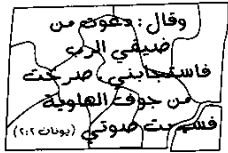 وقال: دعوت من
ضيقي الرب
فاستجابني، صرخت
من جوف الهاوية
فسمعت صوتي (يونان ٢:٢)